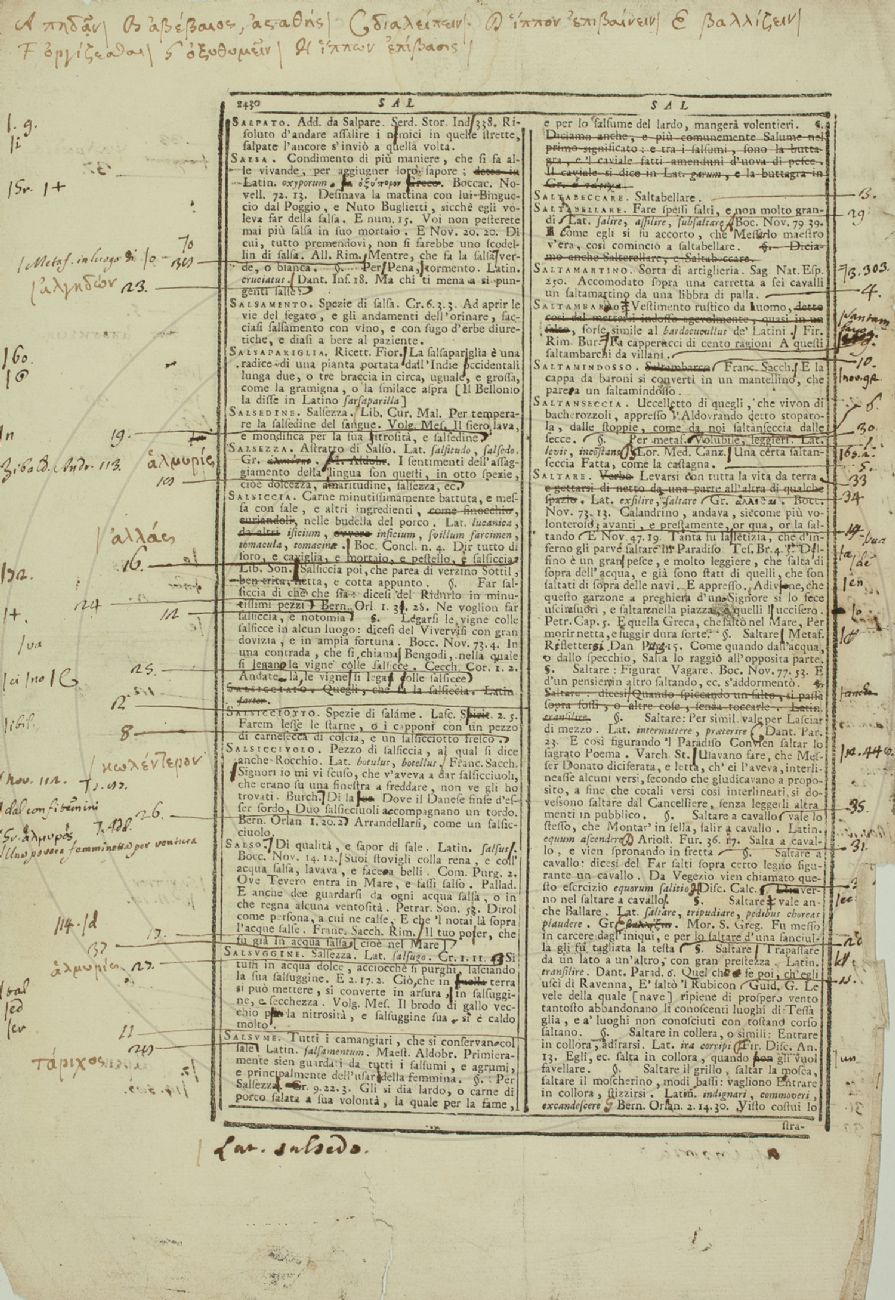 A πηδᾶν| B ἀβέβαιος, ἀσταθής| C διαλείπειν| D ἵππον ἐπιβαίνειν| E βαλλίζειν|
F ὀργίζεσθαι| G ὀξυθυμεῖν| H ἵππων ἐπίβασις|
2430 SAL SAL
SALPATO. Add. da Salpare. Serd. Stor. Ind. 338. Ri-
soluto d'andare assalire i nimici in quelle strette,
salpate l'ancore s'inviò a quella volta.
SALSA. Condimento di più maniere, che si fa al-
le vivande, per aggiugner loro sapore; detto in
Latin. oxyporum. ὀξύπορον Greco. Boccac. No-
vell. 72. 13. Desinava la mattina con lui Binguc-
cio dal Poggio, e Nuto Buglietti, sicchè egli vo-
leva far della salsa. E num. 15. Voi non pesterete
mai più salsa in suo mortaio. E Nov. 20. 20. Di
cui, tutto premendovi, non si farebbe uno scodel-
lin di salsa. All. Rim. Mentre, che fa la salsa ver-
de, o bianca. §. Per Pena, tormento. Latin.
cruciatus. Dant. Inf. 18. Ma chi ti mena a sì pun-
genti salse?
SALSAMENTO. Spezie di salsa. Cr. 6. 3. 3. Ad aprir le
vie del fegato, e gli andamenti dell'orinare, fac-
ciasi salsamento con vino, e con sugo d'erbe diure-
tiche, e diasi a bere al paziente.
SALSAPARIGLIA. Ricett. Fior. La salsapariglia è una
radice di una pianta portata dall'Indie occidentali
lunga due, o tre braccia in circa, uguale, e grossa,
come la gramigna, o la smilace aspra [Il Bellonio
la disse in Latino sarsaparilla]
SALSEDINE. Salsezza. Lib. Cur. Mal. Per tempera-
re la salsedine del sangue. Volg. Mes. Il siero lava,
e mondifica per la sua nitrosità, e salsedine.
SALSEZZA. Astratto di Salso. Lat. salsitudo, salsedo.
Gr. M. Aldobr. I sentimenti dell'assag-
giamento della lingua son questi, in otto spezie,
cioè dolcezza, amaritudine, salsezza, ec.
SALSICCIA. Carne minutissimamente battuta, e mes-
sa con sale, e altri ingredienti, come finocchio,
curiandoli, nelle budella del porco. Lat. lucanica,
da altri isicium, ovvero insicium, suillum farcimen,
tomacula, tomacina. Boc. Concl. n. 4. Dir tutto dì
foro, e caviglia, e mortaio, e pestello, e salsiccia.
Lib. Son. Salsiccia poi, che parea di verzino Sottil,
ben trita, netta, e cotta appunto. §. Far sal-
siccia di che che sia: dicesi del Ridurlo in minu-
tissimi pezzi. Bern. Orl. 1. 3. 28. Ne voglion far
salsiccia, e notomia. §. Legarsi le vigne colle
salsicce in alcun luogo: dicesi del Vivervisi con gran
dovizia, e in ampia fortuna. Bocc. Nov. 73. 4. In
una contrada, che si chiama Bengodi, nella quale
si legano le vigne colle salsicce. Cecch. Cor. 1. 2.
Andate là, le vigne si legan colle salsicce.
SALSICCIAIO. Quegli, che fa la salsiccia. Latin.
fartor.
SALSICCIOTTO. Spezie di salame. Lasc. 2. 5.
Farem lesse le starne, o i capponi con un pezzo
di carnesecca di coscia, e un salsicciotto fresco.
SALSICCIUOLO. Pezzo di salsiccia, al qual si dice
anche Rocchio. Lat. botulus, botellus. Franc. Sacch.
Signori io mi vi scuso, che v'aveva a dar salsicciuoli,
che erano su una finestra a freddare, non ve gli ho
trovati. Burch. Di là Dove il Danese finse d'es-
ser sordo, Duo salsicciuoli accompagnano un tordo.
Bern. Orlan. 1. 20. 2. Arrandellarsi, come un salsic-
ciuolo.
SALSO. Di qualità, e sapor di sale. Latin. salsus.
Bocc. Nov. 14. 12. Suoi stovigli colla rena, e coll'
acqua salsa, lavava, e facea belli. Com. Purg. 2.
Ove Tevero entra in Mare, e fassi salso. Pallad.
E anche dee guardarsi da ogni acqua salsa, o in
che regna alcuna ventosità. Petrar. Son. 53. Dirol
come persona, a cui ne calse, E che 'l notai là sopra
l'acque salse. Franc. Sacch. Rim. Il tuo poter, che
fu già in acqua salsa [cioè nel Mare]
SALSUGGINE. Salsezza. Lat. salsugo. Cr. 1. 11. Si
tuffi in acqua dolce, acciocchè si purghi, lasciando
la sua salsuggine. E 2. 17. 2. Ciò, che in terra
si può mettere, si converte in arsura, in salsuggi-
ne, e secchezza. Volg. Mes. Il brodo di gallo vec-
chio per la nitrosità, e salsuggine sua, si è caldo
molto.
SALSUME. Tutti i camangiari, che si conservan col
sale. Latin. salsamentum. Maest. Aldobr. Primiera-
mente sien guardati da tutti i salsumi, e agrumi,
e principalmente dell'usar della femmina. §. Per
Salsezza. Cr. 9. 22. 3. Gli si dia lardo, o carne di
porco salata a sua volontà, la quale per la fame,
e per lo salsume del lardo, mangerà volentieri. §.
Diciamo anche, e più comunemente Salume nel
primo significato: e tra i salsumi, sono la butta-
gra, e 'l caviale fatti amenduni d'uova di pesce.
Il caviale si dice in Lat. garum, e la buttagra in
Gr.
SALTABECCARE. Saltabellare.
SALTABELLARE. Fare spessi salti, e non molto gran-
di. Lat. salire, assilire, subsultare. Boc. Nov. 79. 39.
E come egli si fu accorto, che Messerlo maestro
v'era, così cominciò a saltabellare. §. Dicia-
mo anche Salterellare, e Saltabeccare.
SALTAMARTINO. Sorta di artiglieria. Sag. Nat. Esp.
250. Accomodato sopra una carretta a sei cavalli
un saltamartino da una libbra di palla.
SALTAMBARCO. Vestimento rustico da uomo, detto
così dal mettersi indosso agevolmente, quasi in un
salto, forse simile al bardocucullus de' Latini. Fir.
Rim. Bur. Fa capperucci di cento ragioni A questi
saltambarchi da villani.
SALTAMINDOSSO. Saltambarco. Franc. Sacch. E la
cappa da baroni si converti in un mantellino, che
parea un saltamindosso.
SALTANSECCIA. Uccelletto di quegli, che vivon di
bacherozzoli, appresso l'Aldovrando detto stoparo-
la, dalle stoppie, come da noi saltanseccia dalle
secce. §. Per metaf. Volubile, leggieri. Lat.
levis, inconstans. Lor. Med. Canz. Una certa saltan-
seccia Fatta, come la castagna.
SALTARE. Verbo Levarsi con tutta la vita da terra
e gettarsi di netto da una parte all'altra di qualche
spazio. Lat. exsilire, saltare Gr. Bocc.
Nov. 73. 13. Calandrino, andava, siccome più vo-
lonteroso, avanti, e prestamente, or qua, or la sal-
tando. E Nov. 47. 19. Tanta fu la letizia, che d'in-
ferno gli parve saltare in Paradiso. Tes. Br. 4. Dal-
fino è un gran pesce, e molto leggiere, che salta di
sopra dell'acqua, e già sono stati di quelli, che son
saltati di sopra delle navi. E appresso. Adivene, che
questo garzone a preghiera d'un Signore sì lo fece
uscir fuori, e saltar nella piazza, e quelli l'uccisero.
Petr. Cap. 5. E quella Greca, che saltò nel Mare, Per
morir netta, e fuggir dura sorte. §. Saltare: Metaf.
Riflettersi. Dan. Purg. 15. Come quando dall'acqua,
o dallo specchio, Salta lo raggio all'opposita parte.
§. Saltare: Figurat. Vagare. Boc. Nov. 77. 53. E
d'un pensier in altro saltando, ec. s'addormentò. §.
Saltare: dicesi Quando spiccando un salto, si passa
sopra fossi, o altre cose, senza toccarle. Latin.
transilire. §. Saltare: Per simil. vale per Lasciar
di mezzo. Lat. intermittere, praeterire. Dant. Par.
23. E così figurando 'l Paradiso Convien saltar lo
sagrato Poema. Varch. St. Usavano fare, che Mes-
ser Donato diciferata, e letta, ch'ei l'aveva, interli-
neasse alcuni versi, secondo che giudicavano a propo-
sito, a fine che cotali versi così interlineati, si do-
vessono saltare dal Cancelliere, senza leggerli altra
menti in pubblico. §. Saltare a cavallo: vale lo
stesso, che Montar' in sella, salir a cavallo. Latin.
equum ascendere. Ariost. Fur. 36. 17. Salta a caval-
lo, e vien spronando in fretta. §. Saltare a
cavallo: dicesi del Far salti sopra certo legno figu-
rante un cavallo. Da Vegezio vien chiamato que-
sto esercizio equorum salitio. Disc. Calc. Dover-
no nel saltare a cavallo. §. Saltare: vale an-
che Ballare. Lat. saltare, tripudiare, pedibus choreas
plaudere. Gr. βαλλίζειν. Mor. S. Greg. Fu messo
in carcere dagl'iniqui, e per lo saltare d'una fanciul-
la gli fu tagliata la testa. §. Saltare: Trapassare
da un lato a un'altro, con gran prestezza. Latin.
transilire. Dant. Parad. 6. Quel che fe poi, ch'egli
uscì di Ravenna, E saltò 'l Rubicon. Guid. G. Le
vele della quale [nave] ripiene di prospero vento
tantosto abbandonano li conoscenti luoghi di Tessa
glia, e a' luoghi non conosciuti con tostano corso
saltano. §. Saltare in collera, o simili: Entrare
in collora, adirarsi. Lat. ira corripi. Fir. Disc. An.
13. Egli, ec. salta in collora, quando gli vuol
favellare. §. Saltare il grillo, saltar la mosca,
saltare il moscherino, modi bassi: vagliono Entrare
in collora, stizzirsi. Latin. indignari, commoveri,
excandescere. Bern. Orlan. 2. 14. 30. Visto costui lo
stra-
1. g.
Metaf. in luogo di
ἀλγηδών 23.
160.
19.
ἁλμυρίς
ἀλλᾶς
16.
24
12
25.
12
8
κωλεντερον
26.
dal confitemini
Gr. ἁλμυρός
Una povera femminetta per ventura
114.
37
ἁλμυρίς 27.
11
τάριχος
13.
29.
303.
4.
10.
6.
30.
33
34
35.
31.
Lat. salsedo.